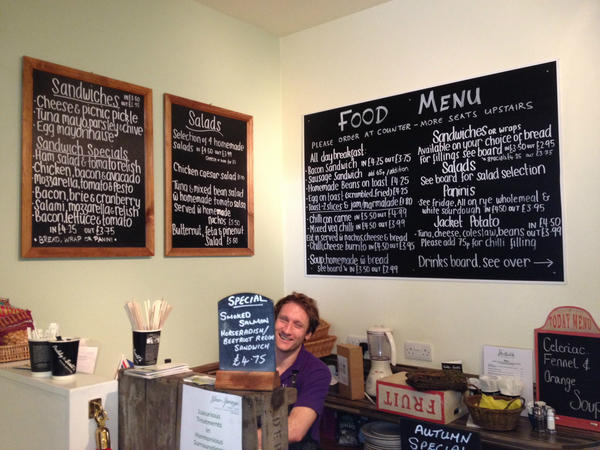 Sandwiches
IN £3.50
OUT £2.95
Cheese & picnic pickle
Tuna mayo, parsley, chive
Egg mayonnaise
Sandwich Specials
Ham, salad & tomato relish
Chicken, bacon & avocado
Mozzarella, tomato & pesto
Bacon, brie & cranberry
Salami, mozzarella & relish
Bacon, lettuce & tomato
IN £4.25
OUT £3.75
BREAD, WRAP OR PANINI
Salads
Selection of 4 homemade
Salads
Chicken caesar salad
Tuna & mixed bean salad
w homemade tomato vinaigrette
Served w
nachos
Butternut, feta & pinenut
Salad £3.60
FOOD MENU
PLEASE ORDER AT COUNTER - MORE SEATS UPSTAIRS
All day breakfast:
Bacon Sandwich IN £4.25 OUT £3.75
Sausage Sandwich
Homemade Beans on toast £4.25
Egg on toast (scrambled, fried) £4.25
Toast - 2 slices & jam/marmalade £1.80
Chilli con carne IN £5.50 OUT £4.99
Mixed veg chilli IN £4.95 OUT
Eat in served w nachos, cheese & bread
Chilli, cheese burrito IN £4.95 OUT £3.50
Soup homemade w bread
See board IN £4.50 OUT £3.95
Sandwiches OR WRAPS
Available on your choice of bread
for fillings see board IN £3.50 OUT £2.95
SPECIALS
Salads
See board for salad selection
Paninis
See fridge. All on rye wholemeal &
white sourdough IN £4.50 OUT £3.95
Jacket Potato
IN £4.50
Tuna, cheese, coleslaw, beans OUT £3.95
Please add 75p for chilli filling
Drinks board, see over →
SPECIAL
SMOKED
SALMON
HORSERADISH/
BEETROOT RELISH
SANDWICH
£4.75
Luxurious
Treatments
in
Harmonious
Surroundings
FRUIT
AUTUMN
SPECIAL
TODAY MENU
Celeriac
Fennel &
Orange
Soup